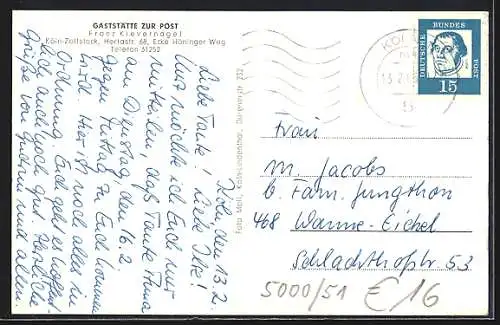 GASTSTÄTTE ZUR POST
Franz Klevernagel
Köln-Zollstock, Hertastr. 68, Ecke Höninger Weg
Telefon 31252
Köln, den 13.2.
Liebe Tante! Liebe Ilse!
Nur möchte ich Euch nur
mitteilen, daß Tante Anna
am Dienstag, den 16.2.
gegen Mittag zu Euch kommen
wird. Hier ist noch alles in
Ordnung. Euch geht es hoffent-
lich auch noch gut. Herzliche
Grüße von und allen.
Foto Mahl, Köln-Lindenthal, Dürener Str. 232
DEUTSCHE
BUNDES
POST
15
Frau
M. Jacobs
b. Fam. Jungthon
468 Wanne-Eickel
Schlachthofstr. 53
5000/51 € 16